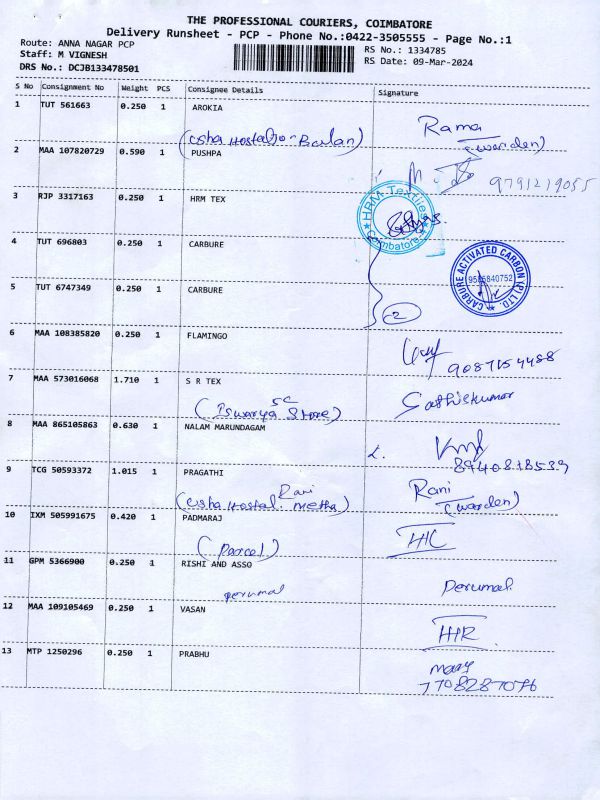 THE PROFESSIONAL COURIERS, COIMBATORE
Delivery Runsheet - PCP - Phone No.:0422-3505555 - Page No.:1
Route: ANNA NAGAR PCP
RS No.: 1334785
Staff: M VIGNESH
RS Date: 09-Mar-2024
DRS No.: DCJB133478501
S No Consignment No Weight PCS Consignee Details Signature
1 TUT 561663 0.250 1 AROKIA
Rama
(Usha Hostal
(warden)
2 MAA 107820729 0.590 1 PUSHPA
9791219055
3 RJP 3317163 0.250 1 HRM TEX
HRM Textiles
Coimbatore
4 TUT 696803 0.250 1 CARBURE
CARBURE ACTIVATED CARBON (P) LTD.
5 TUT 6747349 0.250 1 CARBURE
2
6 MAA 108385820 0.250 1 FLAMINGO
9087154488
7 MAA 573016068 1.710 1 S R TEX
Sathiskumar
(Iswarya Store)
8 MAA 865105863 0.630 1 NALAM MARUNDAGAM
8940818539
9 TCG 50593372 1.015 1 PRAGATHI
Rani
(Usha Hostal Rani Metha)
(warden)
10 IXM 505991675 0.420 1 PADMARAJ
(Parcel)
11 GPM 5366900 0.250 1 RISHI AND ASSO
perumal
Perumal
12 MAA 109105469 0.250 1 VASAN
13 MTP 1250296 0.250 1 PRABHU
mary
7708287076